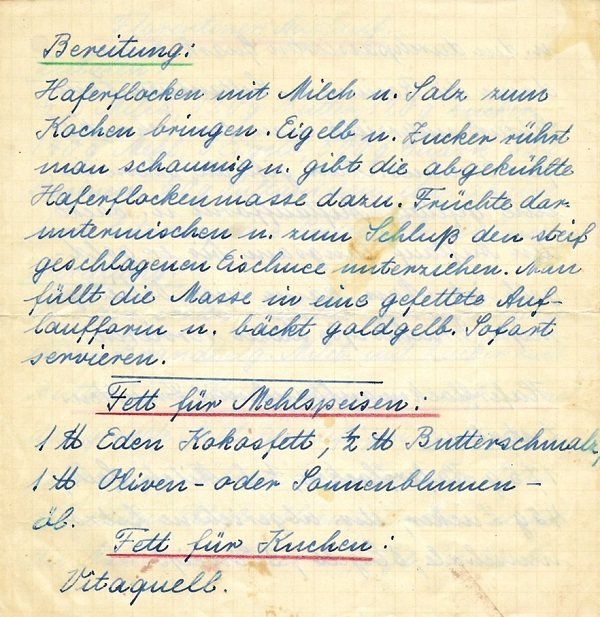 Bereitung:
Haferflocken mit Milch u. Salz zum
Kochen bringen. Eigelb u. Zucker rührt
man schaumig u. gibt die abgekühlte
Haferflockenmasse dazu. Früchte dar-
untermischen u. zum Schluß den steif
geschlagenen Eischnee unterziehen. Man
füllt die Masse in eine gefettete Auf-
laufform u. bäckt goldgelb. Sofort
servieren.
Fett für Mehlspeisen:
1 ℔ Eden Kokosfett, ½ ℔ Butterschmalz,
1 ℔ Oliven- oder Sonnenblumen-
öl.
Fett für Kuchen:
Vitaquell.